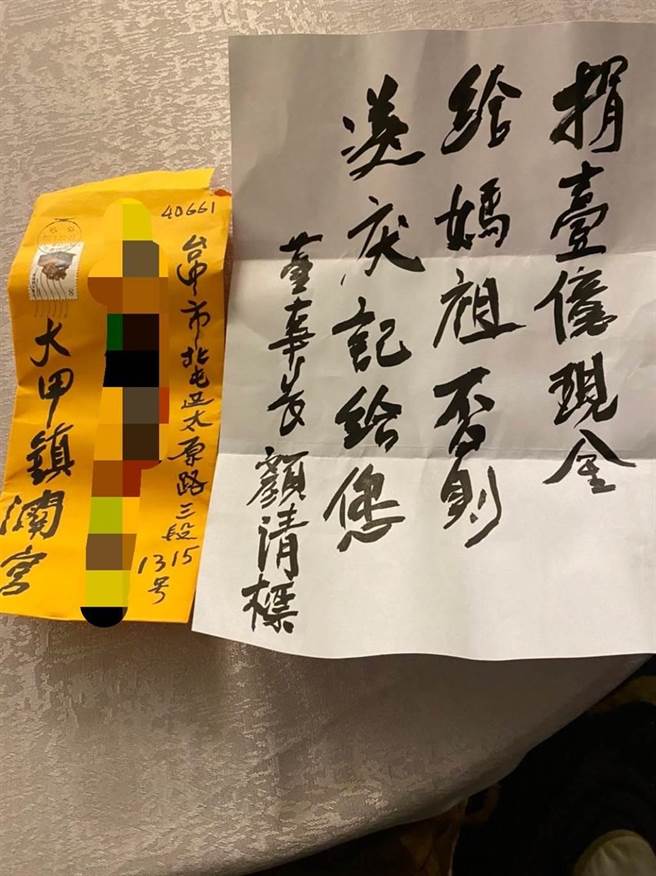 捐壹億現金
給媽祖否則
送庆記給您
董事長顏清標
40661
台中市北屯区太原路三段1315号
大甲鎮瀾宮